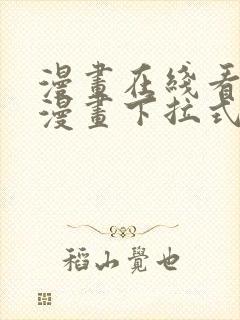 漫畫在綫看
漫畫下拉式
稻山覺也